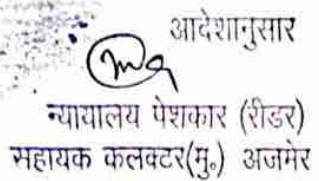 आदेशानुसार
न्यायालय पेशकार (रीडर)
सहायक कलक्टर(मु॰) अजमेर